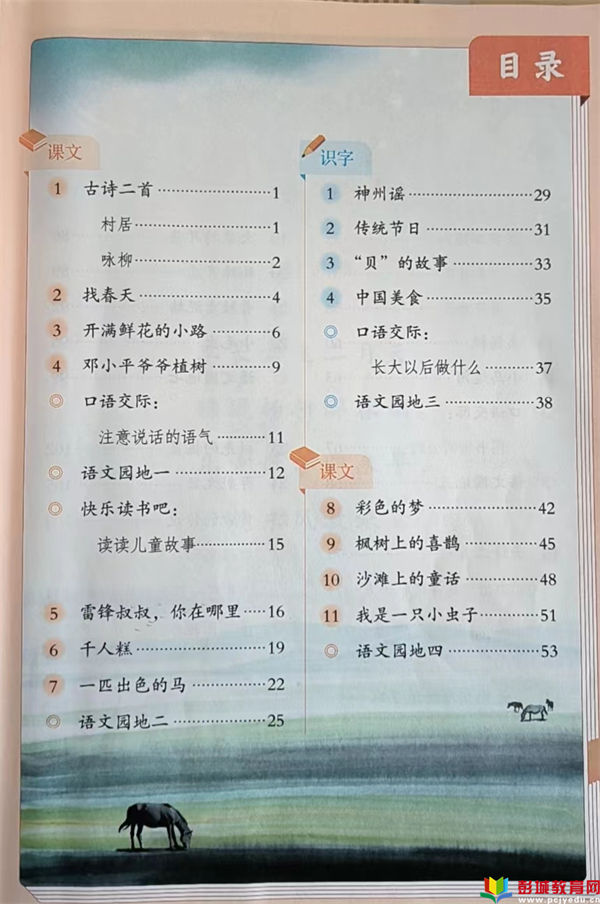 目录
课文
1 古诗二首……………………1
村居……………………1
咏柳……………………2
2 找春天……………………4
3 开满鲜花的小路…………6
4 邓小平爷爷植树…………9
口语交际：
注意说话的语气…………11
语文园地一………………12
快乐读书吧：
读读儿童故事……………15
5 雷锋叔叔，你在哪里……16
6 千人糕……………………19
7 一匹出色的马……………22
语文园地二………………25
识字
1 神州谣……………………29
2 传统节日…………………31
3 “贝”的故事……………33
4 中国美食…………………35
口语交际：
长大以后做什么…………37
语文园地三………………38
课文
8 彩色的梦…………………42
9 枫树上的喜鹊……………45
10 沙滩上的童话……………48
11 我是一只小虫子…………51
语文园地四………………53
彭城教育网
www.pcjyedu.cn